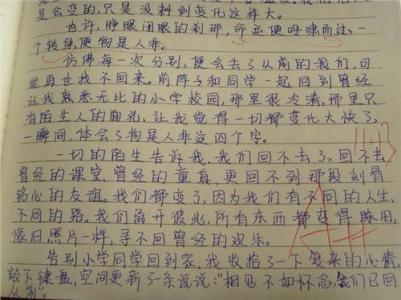 是会变的,只是没料到变化这样大。
也许,睁眼闭眼的刹那,命运便呼啸而过,一
个转身,便物是人非。
仿佛每一次分别,便会去了从前的我们,可
能再也找不回来。前阵子和同学一起回到曾经
让我熟悉无比的小学校园,那里很冷清,那里只
有陌生人的面孔,让我觉得一切都变化太快了,
一瞬间,体会了物是人非这四个字。
一切的陌生告诉我,我们回不去了,回不去
曾经的课堂,曾经的童真,更回不到那段刻骨
铭心的友谊。我们都变了,因为我们有不同的人生,
不同的路。我们离开彼此,所有东西都变得陈旧,
像旧照片一样,寻不回曾经的欢乐。
告别小学同学回到家,我收拾了一下复杂的小情,
敲下键盘,空间更新了一条说说:"相见不如怀念,我们已回